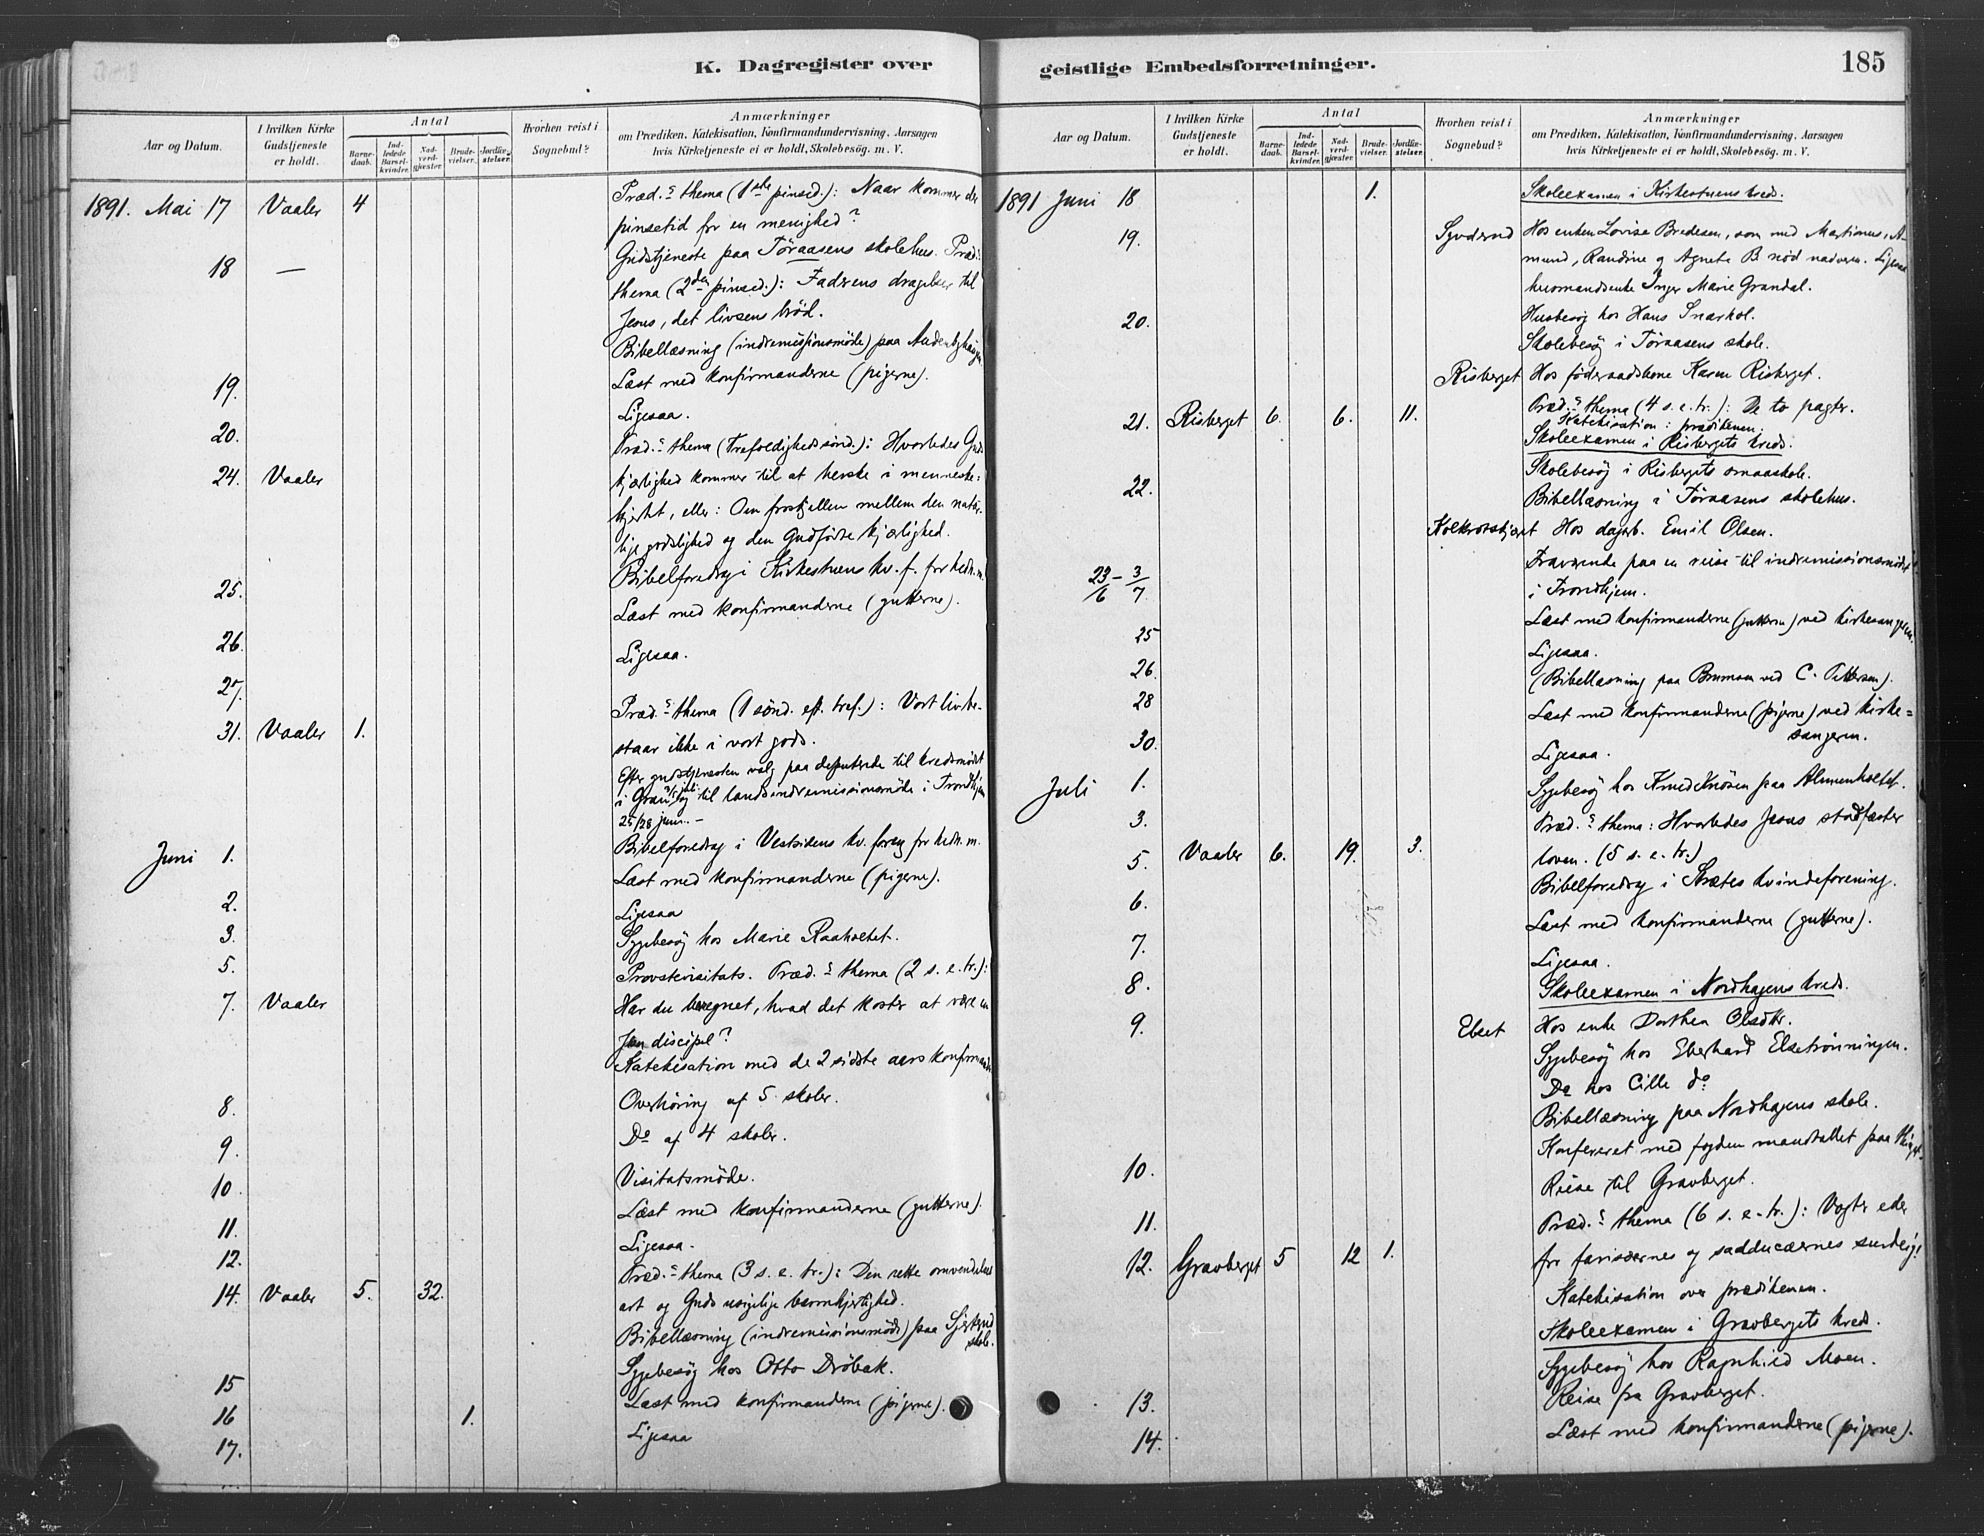 K. Dagregister over
Aar og Datum.
I hvilken Kirke Gudstjeneste er holdt.
Antal
Barnedaab.
Indledede Barselkvinder.
Nadverdgjæster.
Brudevielser.
Jordfæstelser.
Hvorhen reist i Sognebud?
Anmærkninger
om Prædiken, Katekisation, Konfirmandundervisning, Aarsagen
hvis Kirketjeneste ei er holdt, Skolebesøg. m. V.
1891. Mai 17 Vaaler 4 Præd.s thema (1ste pinsed.): Naar kommer der
pinsetid for en menighed?
18 — Gudstjeneste paa Töraasens skolehus. Præd.
thema (2den pinsed.): Faderens dragelser til
Jesus, det livsens bröd.
Bibellæsning (indremissionsmöde) paa
19. Læst med konfirmanderne (pigerne).
20. Ligesaa.
24. Vaaler Præd.s thema (Trefoldighedssönd.): Hvorledes Guds
kjærlighed kommer til at herske i menneske-
hjertet, eller: Om forskjellen mellem den natur-
lige godslighed og den Gudfödte kjærlighed.
25. Bibelforedrag i Kirkestuens kv. f. for hedn. m.
26. Læst med konfirmanderne (gutterne).
27. Ligesaa.
31. Vaaler 1. Præd.s thema (1 sönd. eft. tref.): Vort liv be-
staar ikke i vort gods.
Efter gudstjenesten valg paa deputerede til kredsmödet
i Gran og til landsindremissionsmöde i Trondhjem
25/28 juni. –
Juni 1. Bibelforedrag i Vestsidens kv. foren. for hedn. m.
2. Læst med konfirmanderne (pigerne).
3. Ligesaa
5. Sygebesög hos Marie Raaholtet.
7. Vaaler Provstevisitats. Præd.s thema (2 s. e. tr.):
Har du beregnet, hvad det koster at være en
Jesu discipel?
Katekisation med de 2 sidste aars konfirmander
8. Overhöring af 5 skoler.
9. Do af 4 skoler.
10. Visitatsmöde.
11. Læst med konfirmanderne (gutterne).
12. Ligesaa.
14. Vaaler 5. 32. Præd.s thema (3 s. e. tr.): Den rette omvendelses
art og Guds usigelige barmhjertighed.
Bibellæsning (indremissionsmöde) paa
skole.
15 Sygebesög hos Otto Dröbak.
16 1. Læst med konfirmanderne (pigerne).
17. Ligesaa
geistlige Embedsforretninger.
185
Aar og Datum.
I hvilken Kirke Gudstjeneste er holdt.
Antal
Barnedaab.
Indledede Barselkvinder.
Nadverdgjæster.
Brudevielser.
Jordfæstelser.
Hvorhen reist i Sognebud?
Anmærkninger
om Prædiken, Katekisation, Konfirmandundervisning, Aarsagen
hvis Kirketjeneste ei er holdt, Skolebesøg. m. V.
1891 Juni 18 1. Skoleexamen i Kirkestuens kreds.
19. Hos enken Lovise Bredesen, som med Martinus, A-
mund, Randine og Agnete B nöd nadvern. Ligesaa
husmandsenke Inger Marie Grandal.
20. Husbesög hos Hans Snarhol.
Skolebesög i Töraasens skole.
Risberget Hos föderaadskone Karen Risberget.
21. Risberget 6. 6. 11. Præd.s thema (4 s. e. tr.): De to pagter.
Katekisation: prædikenen.
Skoleexamen i Risbergets kreds.
22. Skolebesög i Risbergets smaaskole.
Bibellæsning i Töraasens skolehus.
Hos dagarb. Emil Olsen.
23/6 – 3/7 Fraværende paa en reise til indremissionsmödet
i Trondhjem.
25 Læst med konfirmanderne (gutterne) ved kirkesangeren.
26 Ligesaa.
28 (Bibellæsning paa ved C. Pettersen).
30. Læst med konfirmanderne (pigerne) ved kirke-
sangeren.
Juli 1. Ligesaa.
3. Sygebesög hos
5. Vaaler 6. 19. 3. Præd.s thema: Hvorledes Jesus stadfæster
loven. (5 s. e. tr.)
6. Bibelforedrag i kvindeforening.
7. Læst med konfirmanderne (gutterne).
8. Ligesaa.
9. Skoleexamen i Nordhagens kreds.
Elset Hos enke Dorthea Olsdtr.
Sygebesög hos Eberhard Elsetrönningen.
Do hos Cille do
Bibellæsning paa Nordhagens skole.
10. Konfereret med fogden mandtallet paa
11. Reise til Gravberget.
12. Gravberget 5 12 1. Præd.s thema (6 s. e. tr.): Vogter eder
for farisæernes og sadducæernes surdeig!
Katekisation over prædikenen.
Skoleexamen i Gravbergets kreds.
Sygebesög hos Ragnhild Moen.
13. Reise fra Gravberget.
14. Læst med konfirmanderne (pigerne).